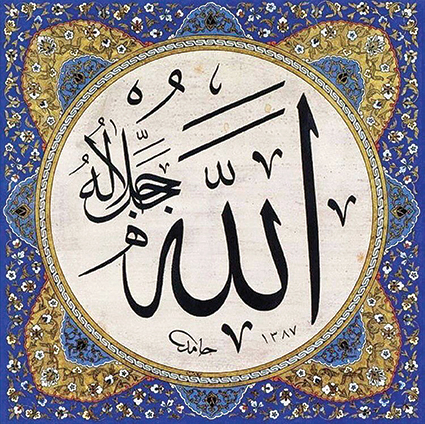 اللّٰه
جَلَّ جَلَالُهُ
حامد ١٣٨٧